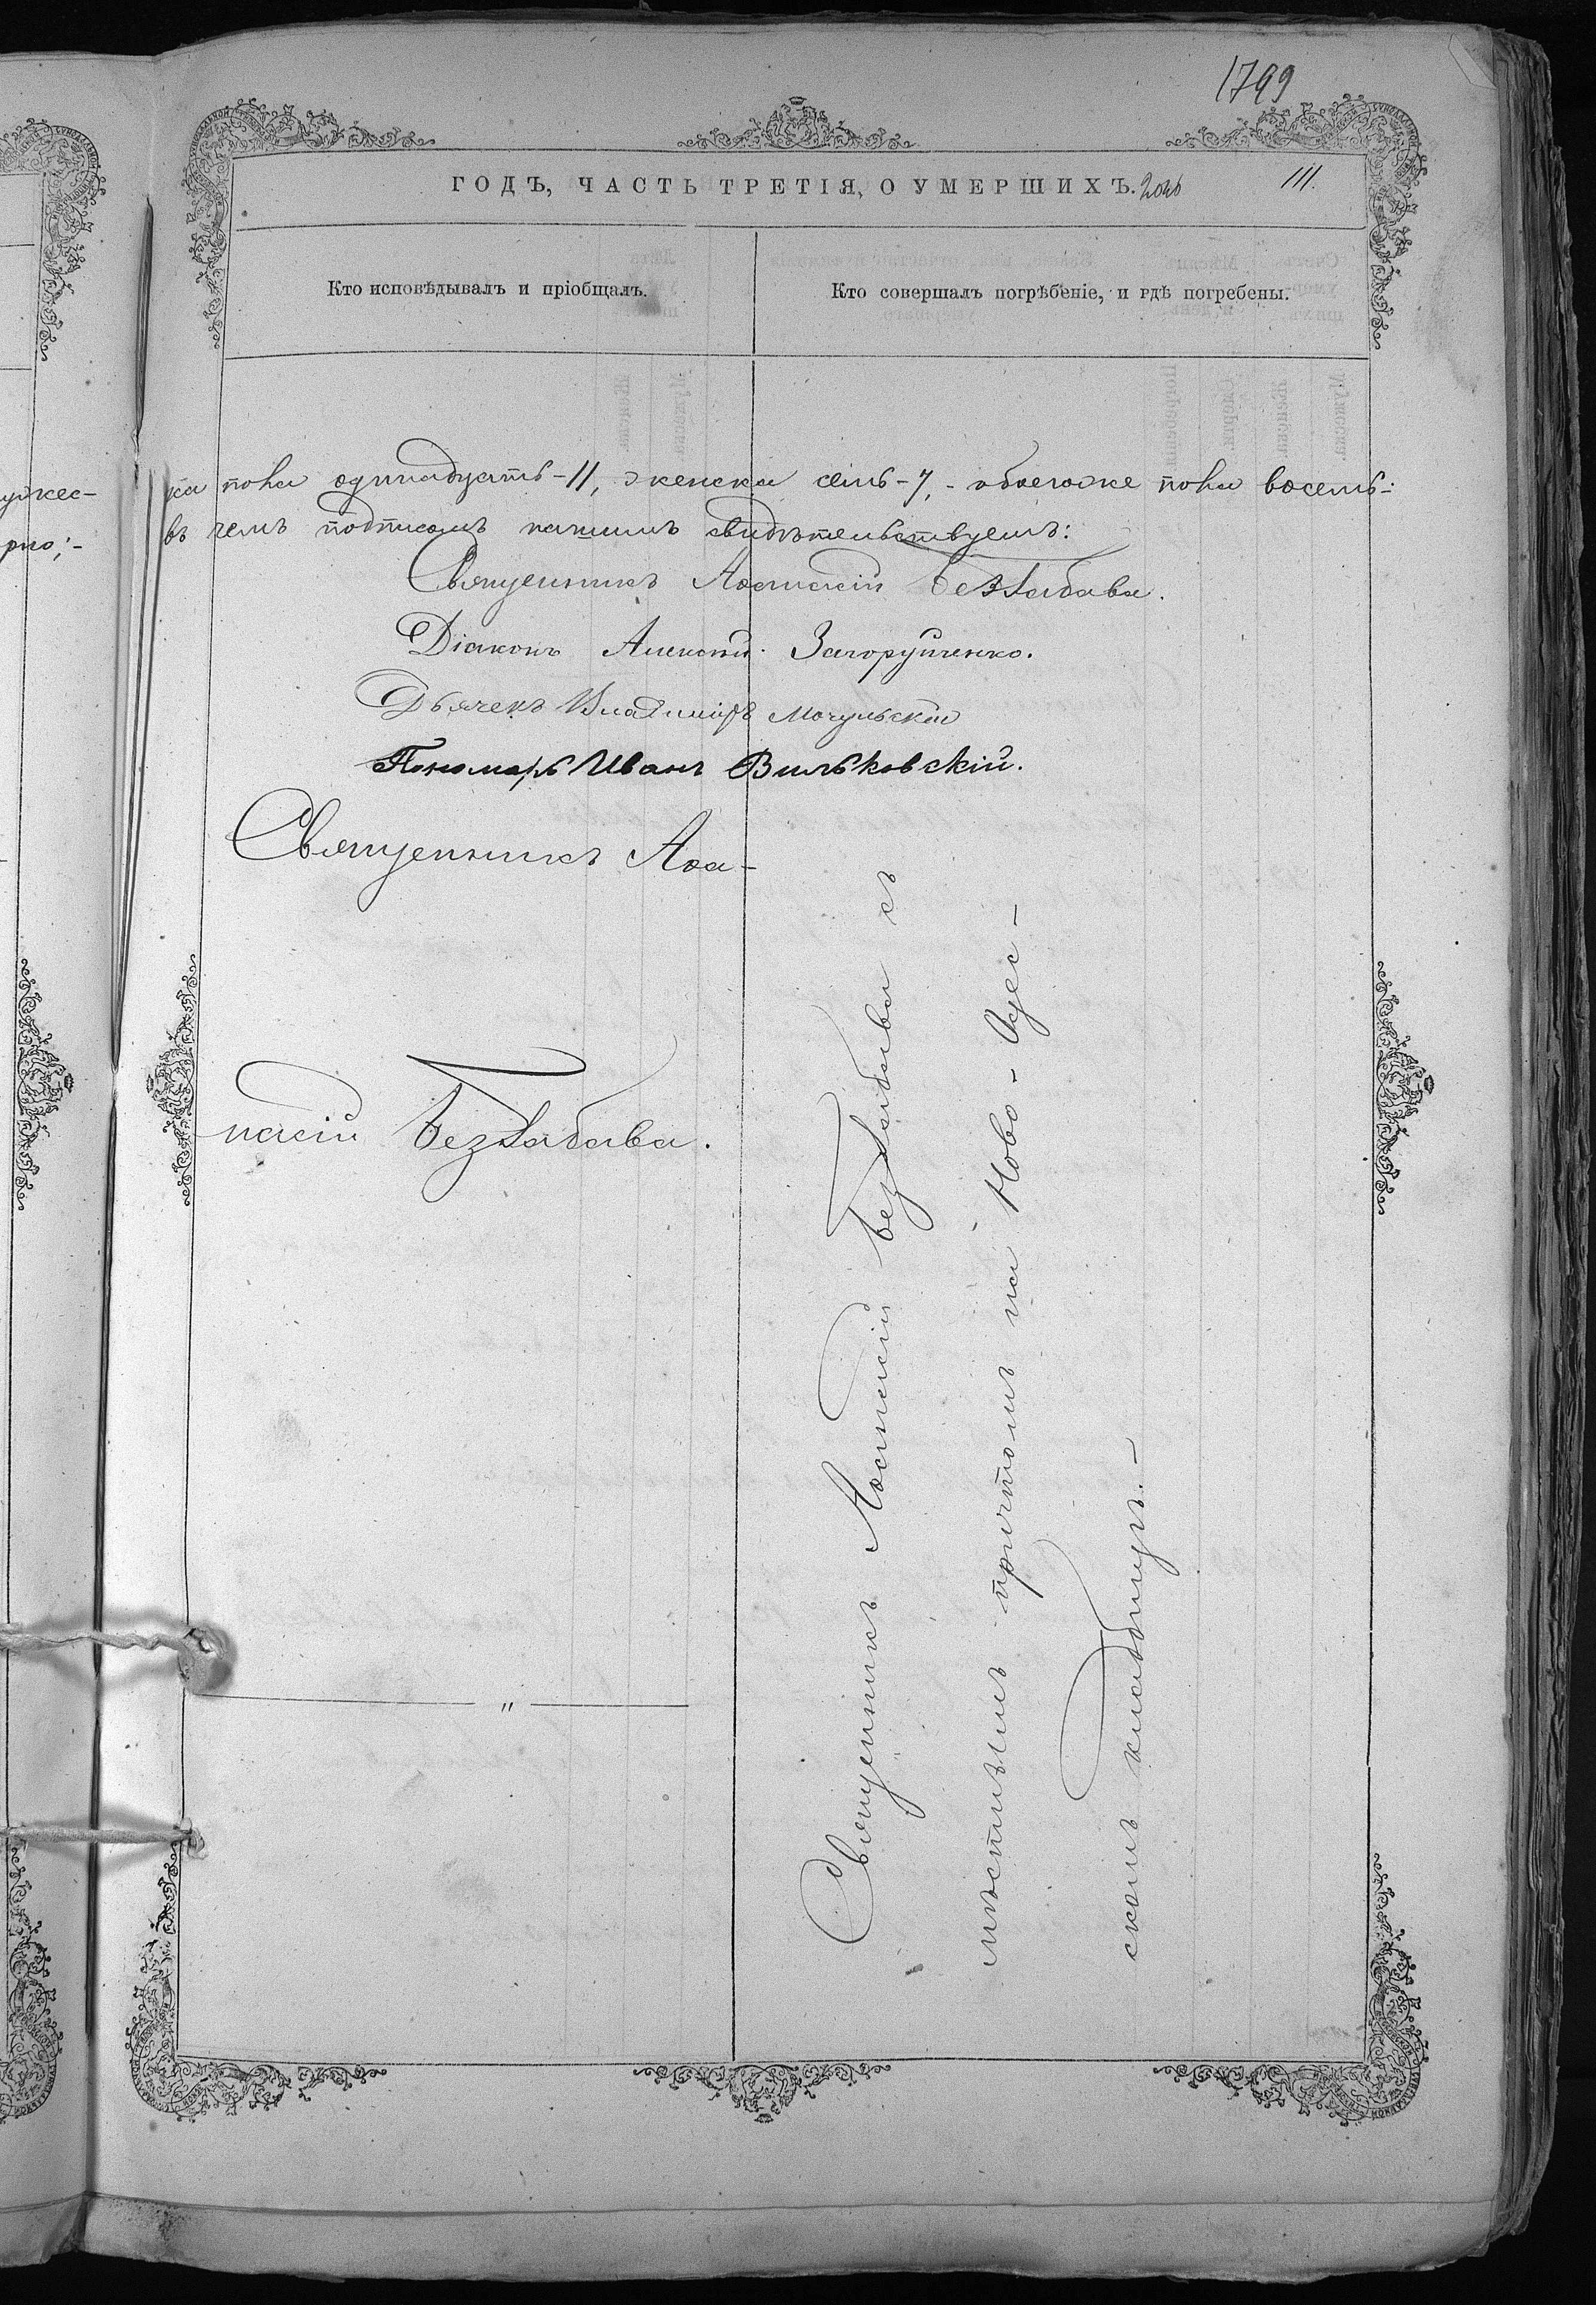 1799
ГОДЪ, ЧАСТЬ ТРЕТІЯ, О УМЕРШИХЪ.
111.
Кто исповѣдывалъ и пріобщалъ.
Кто совершалъ погрѣбеніе, и гдѣ погребены.
ка пола одиннадцать-11, женска семь-7,- обоегоже пола восемь-
въ чемъ подписомъ нашимъ свидѣтельствуемъ:
Священникъ Аѳанасій Беззабава.
Діаконъ Алексѣй Загоруйченко.
Дьячекъ Владиміръ Мочульскій
Пономарь Иванъ Вильковскій.
Священникъ Аѳа-
насій Беззабава.
"
Священникъ Аѳанасій Беззабава съ
мѣстнымъ причтомъ на Ново-Одес-
скомъ кладбищѣ.-